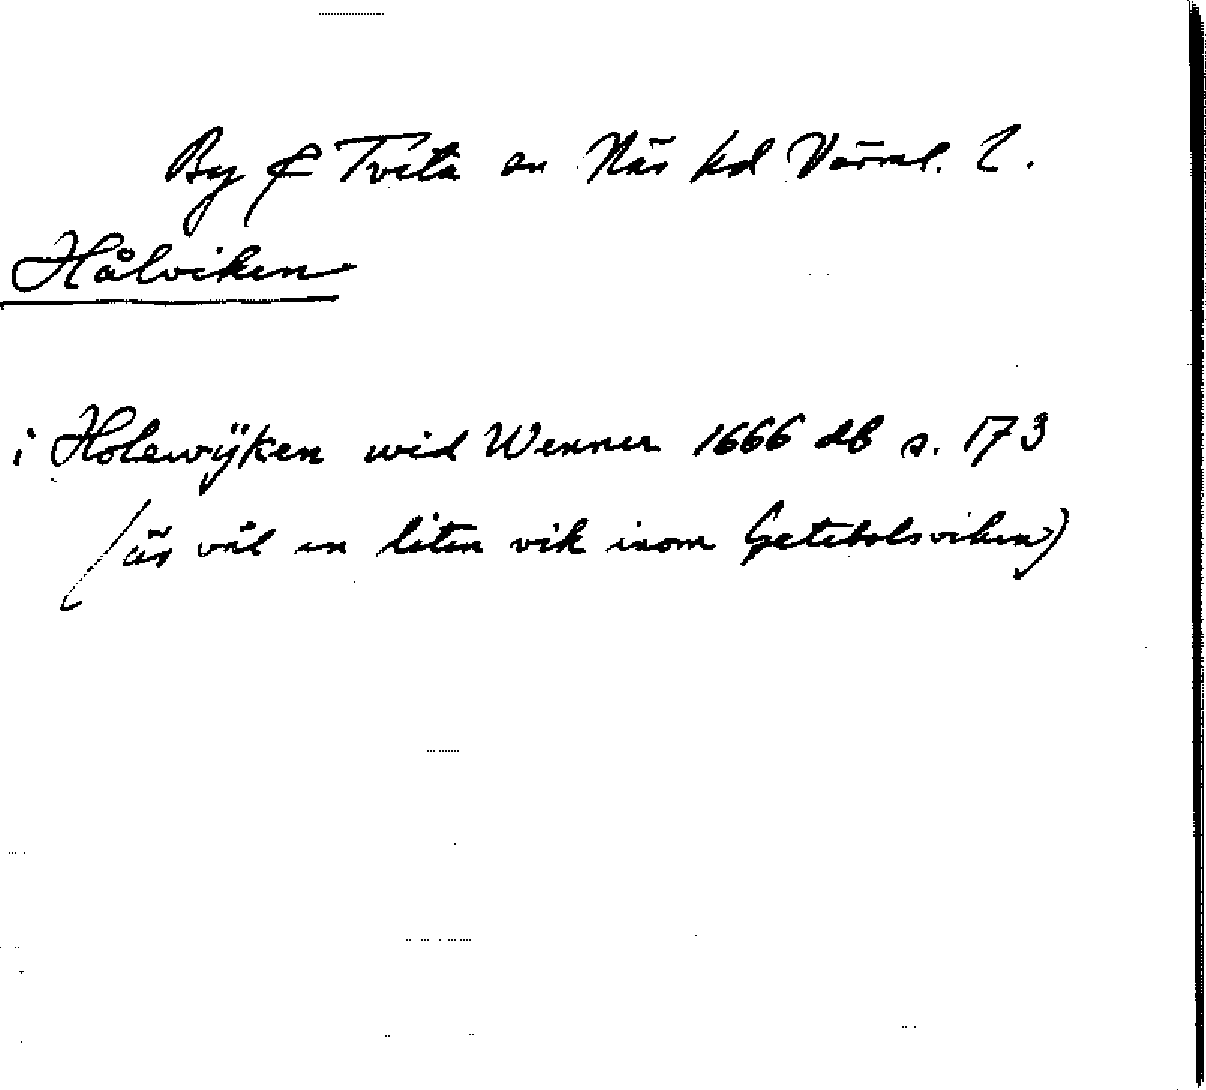 By f Tveta sn Näs hd Värml. l.
Hålviken
i Holewÿken wid Wenner 1666 db s. 173
(är väl en liten vik inom Getebolsviken)